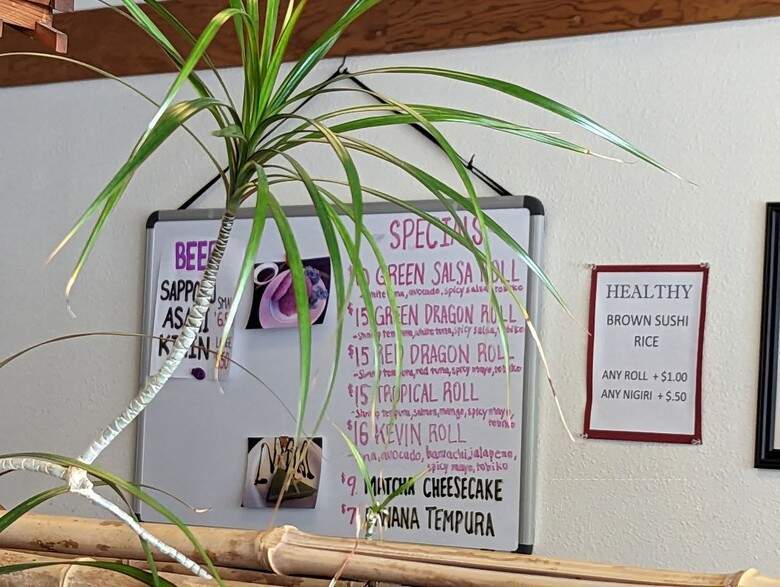 BEER
SAPPORO
ASAHI
KIRIN
SPECIALS
GREEN SALSA ROLL
avocado, spicy salsa, tobiko
$15 GREEN DRAGON ROLL
-shrimp tempura, white tuna, spicy salsa, tobiko
$15 RED DRAGON ROLL
-Shrimp tempura, red tuna, spicy mayo, tobiko
$15 TROPICAL ROLL
-Shrimp tempura, salmon, mango, spicy mayo,
tobiko
$16 KEVIN ROLL
avocado, hamachi, jalapeno,
spicy mayo, tobiko
$9. MATCHA CHEESECAKE
$7 BANANA TEMPURA
HEALTHY
BROWN SUSHI
RICE
ANY ROLL + $1.00
ANY NIGIRI + $.50